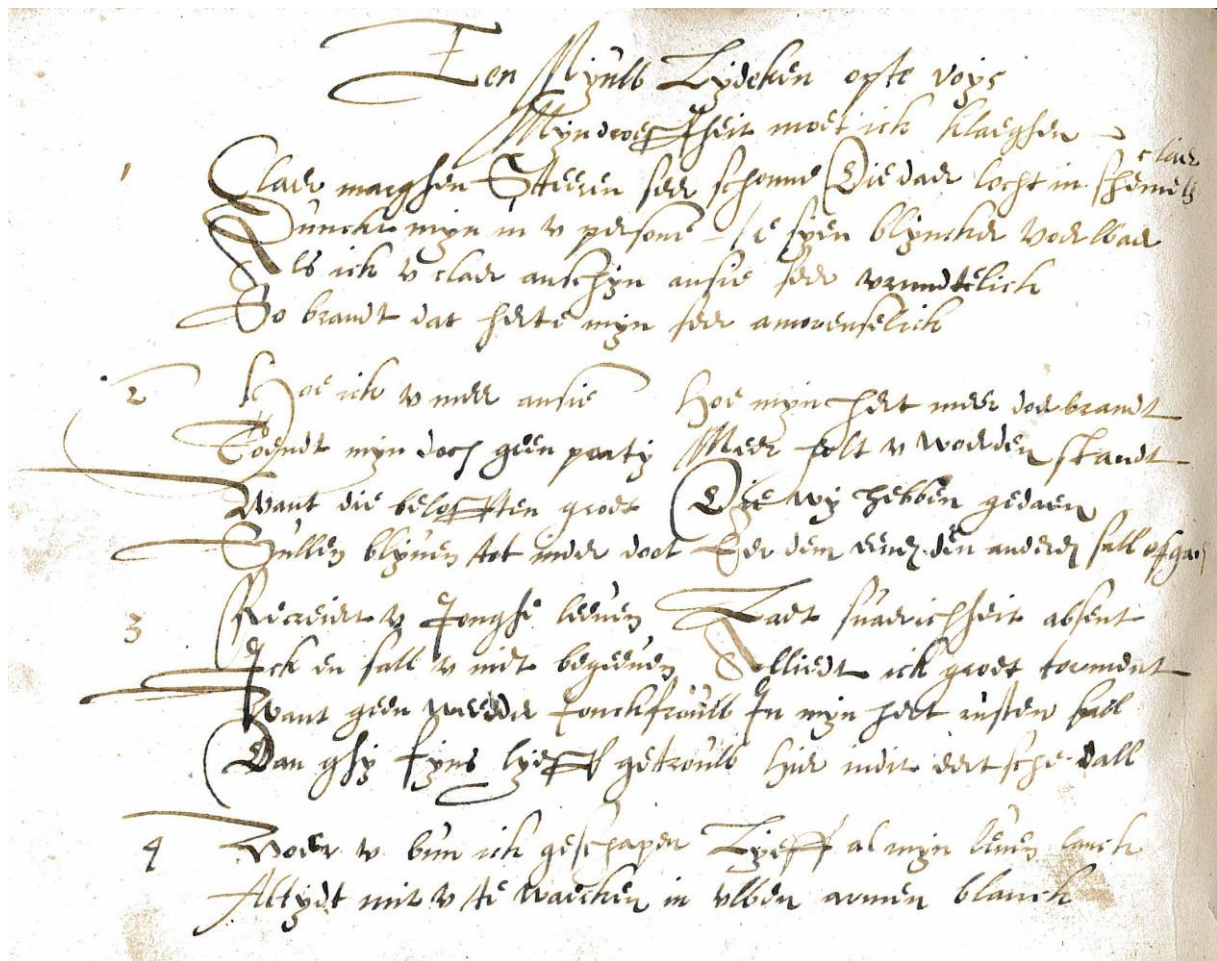 Een Nyuw Lydeken opte voys
Myn droeffheit moet ick klaeghen
1 Claer marghen Steeren seer schonne Die daer locht in shemels claer
Dunckt myn in v persone Ie syen blyncken voerwaer
Als ick v claer anschyn ansie seer vrundtelick
So brandt dat herte myn seer amoreuselick
2 Hoe ick v meer ansie Hoe myn hert meer doerbrandt
Toendt myn doch geen party Meer holt v woerden standt
Want die belofften groet Die wy hebben gedaen
Sullen blyuen tot inder doot Eer dem eenen den anderen sall afgaen
3 Recreiert v Jonghe leeuen Laet swaericheit absent
Ick en sall v niet begeeuen Al liedt ick groet torment
Want geen weeder Jonckfrouw In myn hert rusten sall
Dan ghy fyns lyeff getrouw hier in dit eertsche dall
4 Voer v bun ick geschapen Lyeff al myn leuen lanck
Altydt mit v te waecken in vwen armen blanck